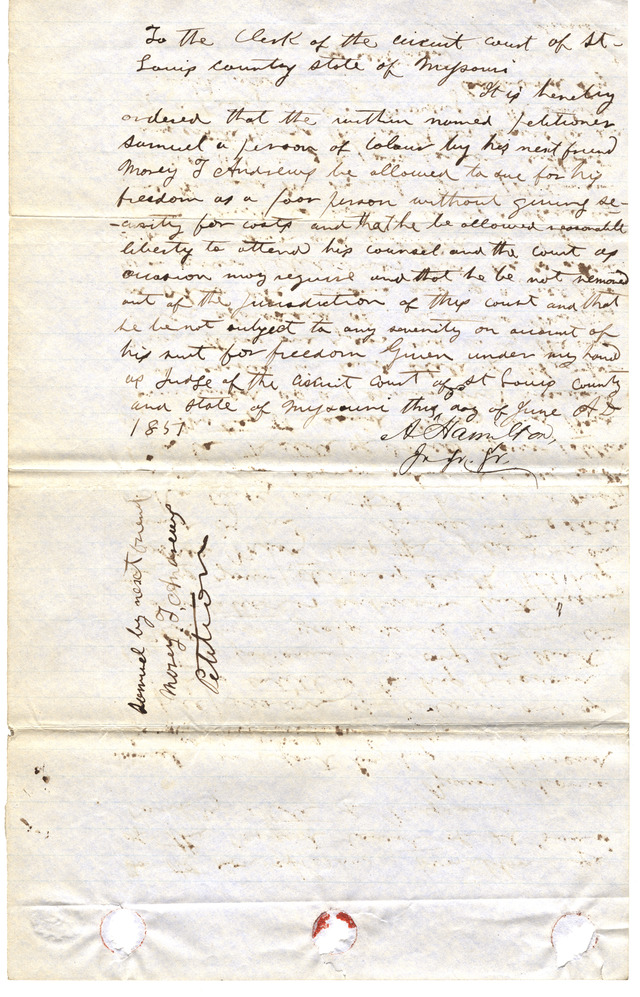 To the Clerk of the circuit court of St-
Louis county state of Missouri
It is hereby
ordered that the within named petitioner
Samuel a person of Colour by his next friend
Morey T Andrews be allowed to sue for his
freedom as a poor person without giving se-
-curity for costs and that he be allowed reasonable
liberty to attend his counsel and the court as
occasion may require and that he be not removed
out of the jurisdiction of this court and that
he be not subject to any severity on account of
his suit for freedom Given under my hand
as Judge of the circuit court of St Louis county
and state of Missouri this day of June AD
1851
A. Hamilton,
Samuel by next friend
Morey T Andrews
Petition